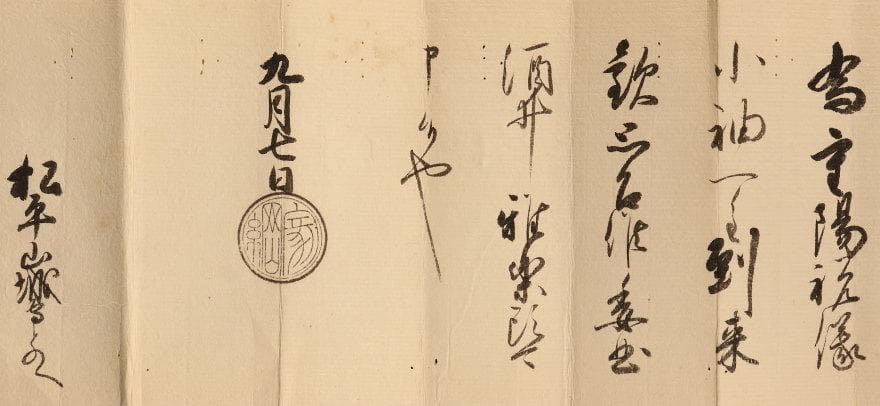 為重陽祝儀
小袖一重到来
歓思召候委曲
酒井雅楽頭可
申候也
九月七日
家綱
松平山城守とのへ